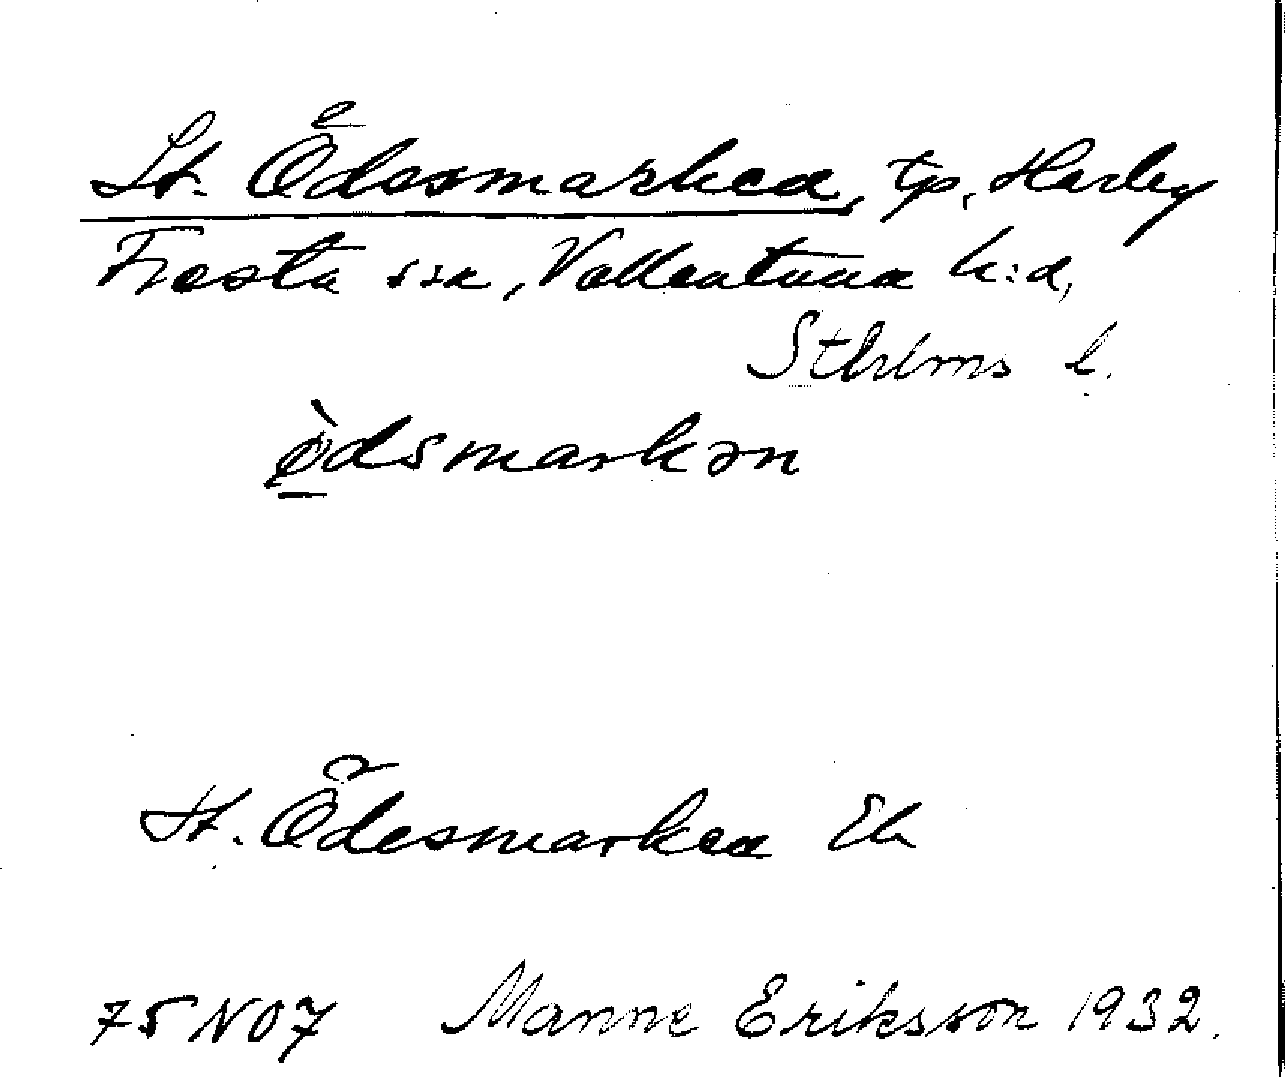 St. Ödesmarken, tp, Harby
Fresta s:n, Vallentuna h:d,
Sthlms l.
ø̀dsmarkən
St. Ödesmarken Ek
75 NO7 Manne Eriksson 1932.